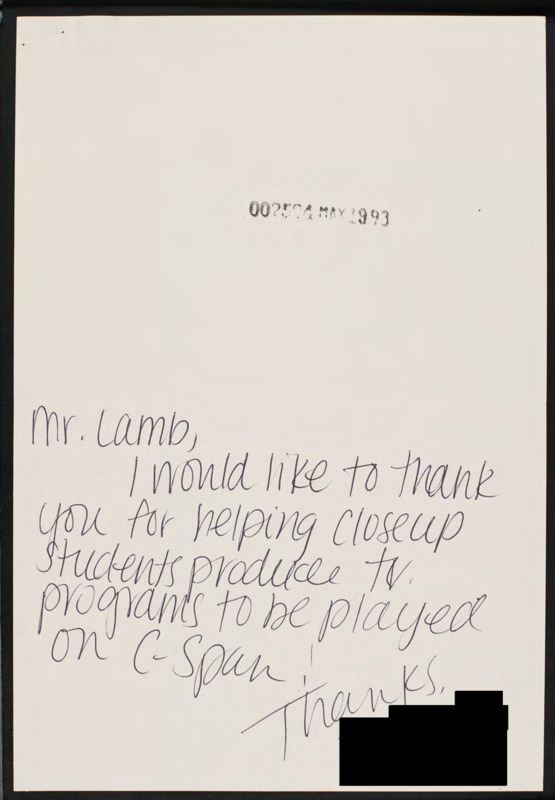 MAY 1993
Mr. Lamb,
I would like to thank
you for helping closeup
students produce tv.
programs to be played
on C-Span!
Thanks,